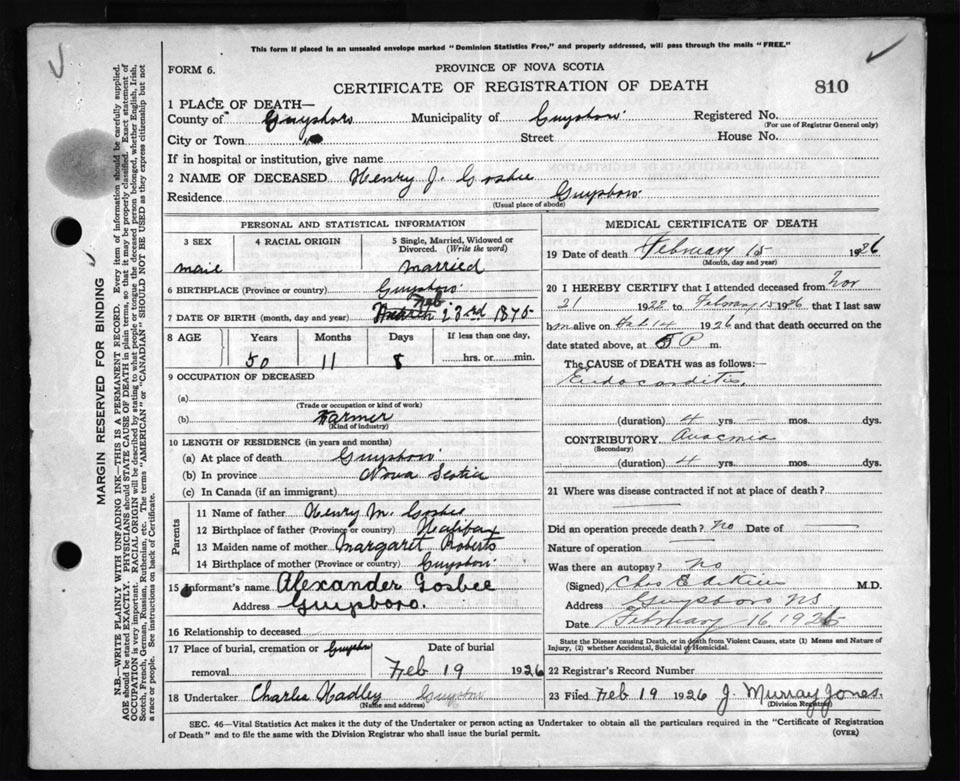 This form if placed in an unsealed envelope marked "Dominion Statistics Free," and properly addressed, will pass through the mails "FREE."
FORM 6.
PROVINCE OF NOVA SCOTIA
CERTIFICATE OF REGISTRATION OF DEATH
810
1 PLACE OF DEATH—
County of Guysboro Municipality of Guysboro Registered No.
(For use of Registrar General only)
City or Town " Street House No.
If in hospital or institution, give name
2 NAME OF DECEASED Henry J. Gosbee
Residence Guysboro
(Usual place of abode)
PERSONAL AND STATISTICAL INFORMATION
3 SEX 4 RACIAL ORIGIN 5 Single, Married, Widowed or Divorced. (Write the word)
male married
6 BIRTHPLACE (Province or country) Guysboro
Feb
7 DATE OF BIRTH (month, day and year) 23rd 1875
8 AGE Years Months Days If less than one day,
50 11 8 hrs. or min.
9 OCCUPATION OF DECEASED
(a)
(Trade or occupation or kind of work)
(b) Farmer
(Kind of industry)
10 LENGTH OF RESIDENCE (in years and months)
(a) At place of death Guysboro
(b) In province Nova Scotia
(c) In Canada (if an immigrant)
Parents
11 Name of father Henry M. Gosbee
12 Birthplace of father (Province or country) Halifax
13 Maiden name of mother Margaret Roberts
14 Birthplace of mother (Province or country) Guysboro
15 Informant's name Alexander Gosbee
Address Guysboro.
16 Relationship to deceased
17 Place of burial, cremation or removal Guysboro Date of burial
Feb 19 1926
18 Undertaker Charles Hadley Guysboro
(Name and address)
MEDICAL CERTIFICATE OF DEATH
19 Date of death February 15 1926
(Month, day and year)
20 I HEREBY CERTIFY that I attended deceased from Nov
21 1922 to February 15 1926 that I last saw
him alive on Feb 14 1926 and that death occurred on
the date stated above, at 5 P m.
The CAUSE OF DEATH was as follows:—
Endocarditis
(duration) 4 yrs. mos. dys.
CONTRIBUTORY Anaemia
(Secondary)
(duration) 4 yrs. mos. dys.
21 Where was disease contracted if not at place of death?
Did an operation precede death? No Date of
Nature of operation
Was there an autopsy? no
(Signed) Chas E Aitken M.D.
Address Guysboro NS
Date February 16 1926
State the Disease causing Death, or in death from Violent Causes, state (1) Means and Nature of Injury, (2) whether Accidental, Suicidal or Homicidal.
22 Registrar's Record Number
23 Filed Feb 19 1926 J. Murray Jones.
(Division Registrar)
SEC. 46—Vital Statistics Act makes it the duty of the Undertaker or person acting as Undertaker to obtain all the particulars required in the "Certificate of Registration
of Death" and to file the same with the Division Registrar who shall issue the burial permit.
(OVER)
MARGIN RESERVED FOR BINDING
N.B.—WRITE PLAINLY WITH UNFADING INK—THIS IS A PERMANENT RECORD. Every item of information should be carefully supplied.
AGE should be stated EXACTLY. PHYSICIANS should STATE CAUSE OF DEATH in plain terms, so that it may be properly classified. Exact statement of
OCCUPATION is very important. RACIAL ORIGIN will be described by stating to what people or tongue the deceased person belonged, whether English, Irish,
Scotch, French, German, Russian, Ruthenian, etc. The terms "AMERICAN" or "CANADIAN" SHOULD NOT BE USED as they express citizenship but not
a race or people. See instructions on back of Certificate.